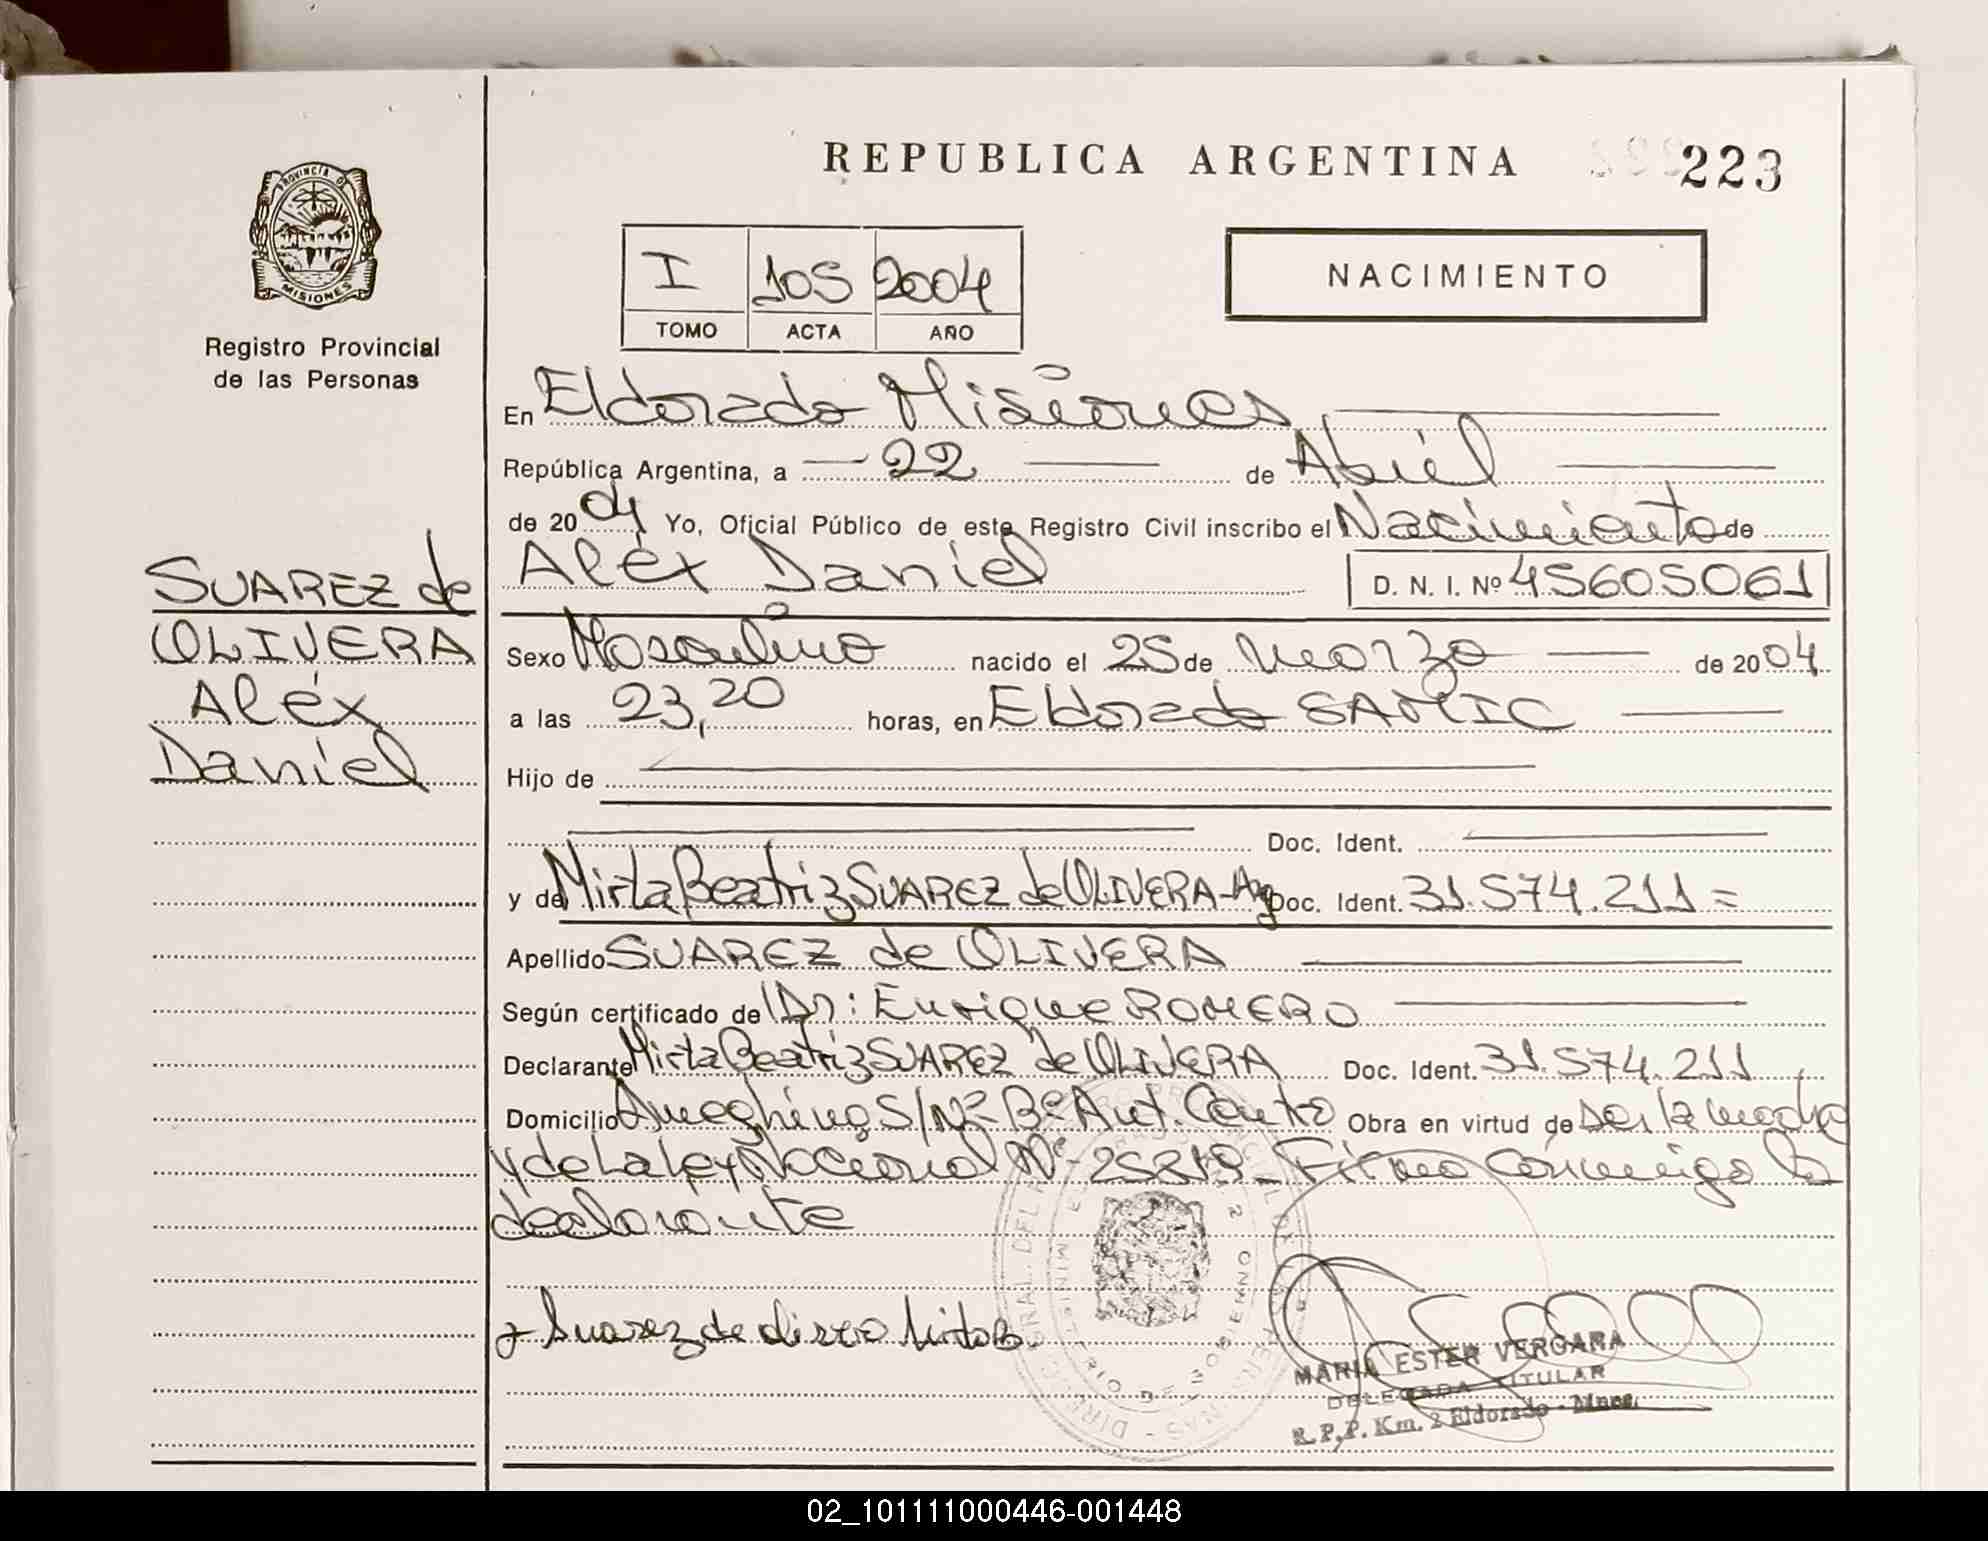 REPUBLICA ARGENTINA
223
PROVINCIA DE
MISIONES
Registro Provincial
de las Personas
I 105 2004
TOMO ACTA AÑO
NACIMIENTO
En Eldorado Misiones
República Argentina, a 22 de Abril
de 2004 Yo, Oficial Público de este Registro Civil inscribo el Nacimiento de
Aléx Daniel D. N. I. Nº 45605061
SUAREZ de
OLIVERA
Aléx
Daniel
Sexo Masculino nacido el 25 de Marzo de 2004
a las 23,20 horas, en Eldorado SAMIC
Hijo de
Doc. Ident.
y de Mirta Beatriz SUAREZ de OLIVERA-Arg Doc. Ident. 31.574.211=
Apellido SUAREZ de OLIVERA
Según certificado de Dr: Enrique ROMERO
Declarante Mirta Beatriz SUAREZ de OLIVERA Doc. Ident. 31.574.211
Domicilio Ameghino S/Nº- Bº Aut. Cautro Obra en virtud de ser la madre
y de la ley Nacional Nº- 25819- Firma conmigo la
declarante
Suarez de Mirta B.
MARIA ESTER VERGARA
DELEGADA TITULAR
R. P. P. Km. 2 Eldorado - Mnes.
02_101111000446-001448